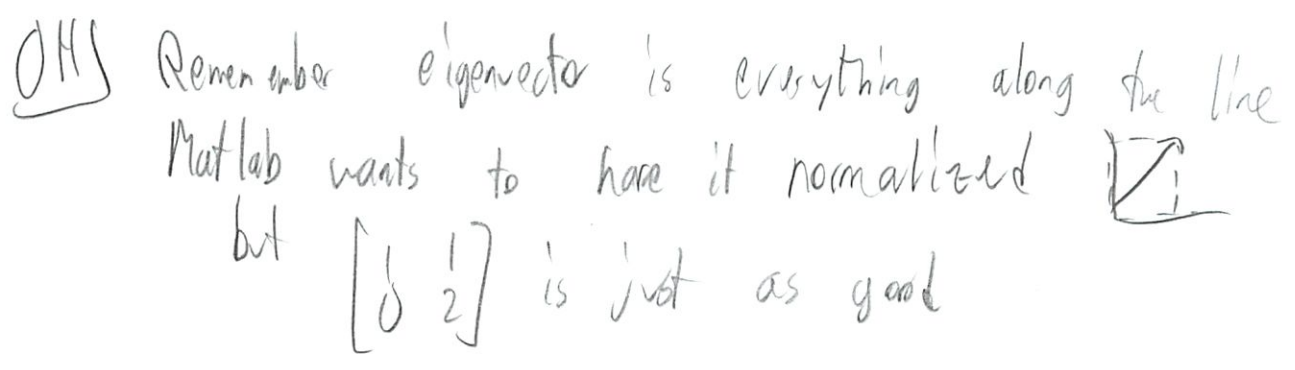 OHS Remember eigenvector is everything along the line
Matlab wants to have it normalized
but [1 1
0 2] is just as good